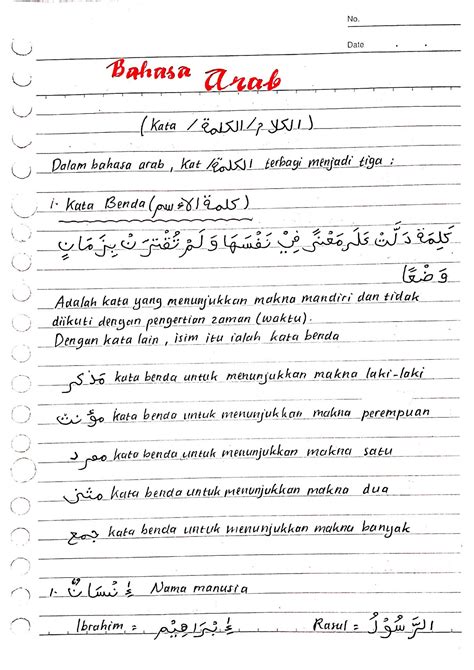 No.
Date
Bahasa Arab
(Kata / الكلمة/الكلام)
Dalam bahasa arab, Kat /الكلمة terbagi menjadi tiga :
1. Kata Benda (كلمة الإسم)
كَلِمَةٌ دَلَّتْ عَلَى مَعْنًى فِيْ نَفْسَهَا وَلَمْ تُقْتَرَنْ بِزَمَانٍ
وَضْعًا
Adalah kata yang menunjukkan makna mandiri dan tidak
diikuti dengan pengertian zaman (waktu).
Dengan kata lain, isim itu ialah kata benda
مذكر kata benda untuk menunjukkan makna laki-laki
مؤنث kata benda untuk menunjukkan makna perempuan
مفرد kata benda untuk menunjukkan makna satu
مثنى kata benda untuk menunjukkan makna dua
جمع kata benda untuk menunjukkan makna banyak
1. إِنْسَانٌ Nama manusia
Ibrahim = إِبْرَاهِيْمُ Rasul = الرَّسُوْلُ